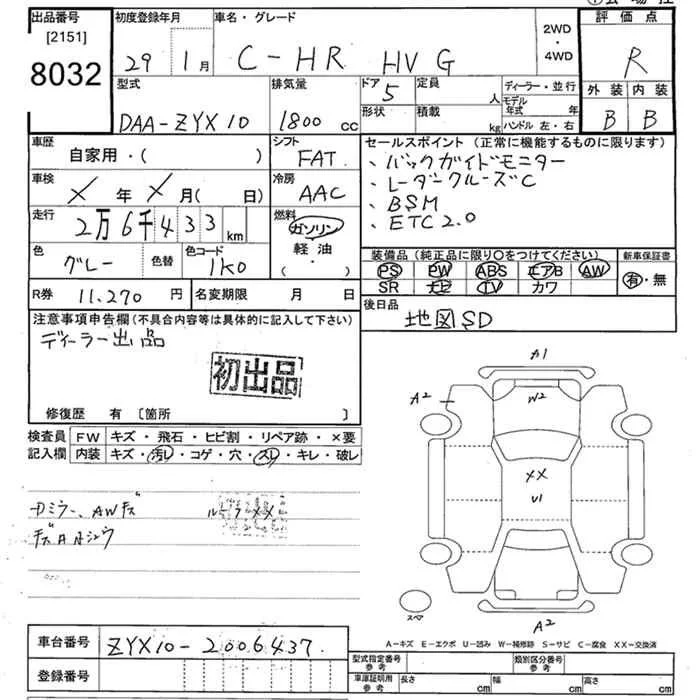 出品番号
[2151]
8032
初度登録年月
29 1月
車名・グレード
C-HR HV G
2WD
・
4WD
評価点
R
外装 内装
B B
型式
DAA-ZYX10
排気量
1800 cc
ドア
5
定員
人
形状
積載
kg
ディーラー・並行
モデル
年式 年
ハンドル 左・右
車歴
自家用・( )
シフト
FAT
車検
X 年 X 月( 日)
冷房
AAC
走行
2万6千433 km
燃料
ガソリン
軽油
( ・ )
色
グレー
色替
色コード
1K0
セールスポイント(正常に機能するものに限ります)
、バックガイドモニター
、レーダークルーズC
、BSM
、ETC2.0
装備品(純正品に限り○をつけてください)
新車保証書
PS PW ABS エアB AW
SR ナビ TV カワ
有・無
R券 11,270 円
名変期限 月 日
後日品
地図SD
注意事項申告欄(不具合内容等は具体的に記入して下さい)
ディーラー出品
初出品
修復歴 有 〔箇所 〕
検査員
記入欄
FW キズ・飛石・ヒビ割・リペア跡・×要
内装 キズ・汚レ・コゲ・穴・スレ・キレ・破レ
Dミラー、AWキズ
ルーフXX
A1
A2
W2
XX
U1
スペア
A2
A-キズ E-エクボ U-凹み W-補修跡 S-サビ C-腐食 XX-交換済
車台番号
ZYX10-2006437
登録番号
型式指定番号
参考
類別区分番号
参考
車庫証明用
参考
長さ cm
幅 cm
高さ cm